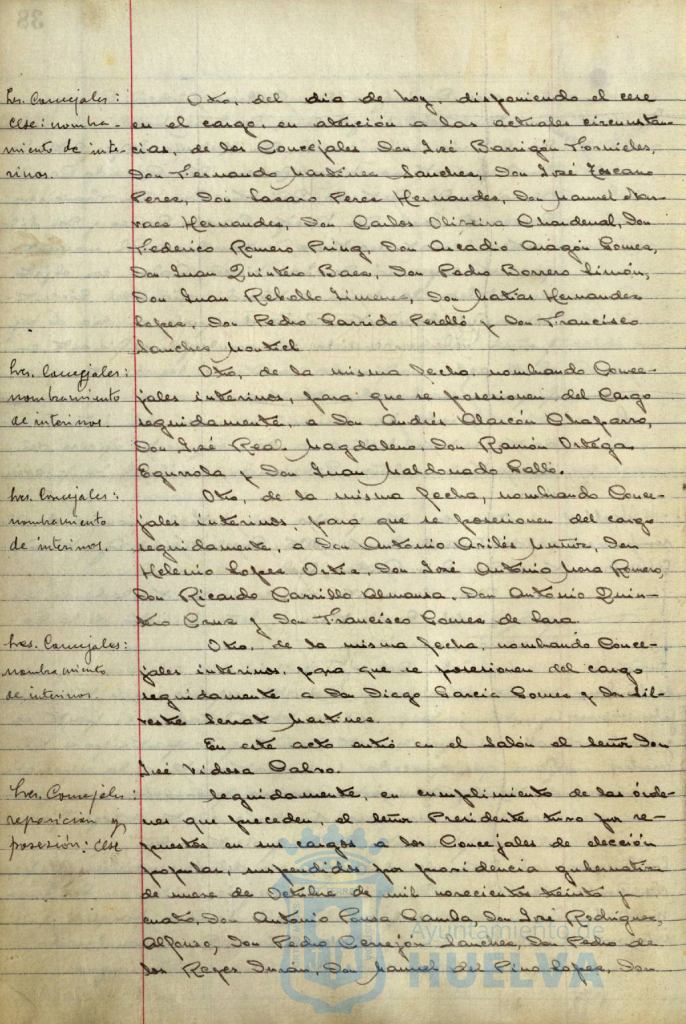 38
Sres. Concejales:
cese: nombra-
miento de inte-
rinos.
Otro, del dia de hoy, disponiendo el cese
en el cargo, en atención a las actuales circunstan-
cias, de los Concejales Don José Barrigón Fornieles,
Don Fernando Martínez Sanchez, Don José Toscano
Perez, Don Lazaro Perez Hernandez, Don Manuel Nar-
vaez Hernandez, Don Carlos Oliveira Chardenal, Don
Federico Romero Prinz, Don Arcadio Aragón Gomez,
Don Juan Quintero Baez, Don Pedro Borrero Limón,
Don Juan Rebollo Jimenez, Don Matías Hernandez
Lopez, Don Pedro Garrido Perelló y Don Francisco
Sanchez Montiel
Sres. Concejales:
nombramiento
de interinos
Otro, de la misma fecha, nombrando Conce-
jales interinos, para que se posesionen del cargo
seguidamente, a Don Andrés Alarcón Chaparro,
Don José Real Magdaleno, Don Ramón Ortega
Egurrola y Don Juan Maldonado Salló.
Sres. Concejales:
nombramiento
de interinos.
Otro, de la misma fecha, nombrando Conce-
jales interinos, para que se posesionen del cargo
seguidamente, a Don Antonio Avilés Muñoz, Don
Helenio Lopez Ortiz, Don José Antonio Mora Romero,
Don Ricardo Carrillo Almansa, Don Antonio Quin-
tero Cruz y Don Francisco Gomez de Lara.
Sres. Concejales:
nombramiento
de interinos.
Otro, de la misma fecha, nombrando Conce-
jales interinos, para que se posesionen del cargo
seguidamente a Don Diego Garcia Gomez y Don Sil-
vestre Serrat Martinez.
En este acto entró en el Salón el señor Don
José Vidosa Calvo.
Sres. Concejales:
reposición y
posesión: cese
Seguidamente, en cumplimiento de las órde-
nes que preceden, el señor Presidente tuvo por re-
puestos en sus cargos a los Concejales de elección
popular, suspendidos por providencia gubernativa
de nueve de Octubre de mil novecientos treinta y
cuatro, Don Antonio Ponsa Gamba, Don José Rodriguez
Alfonso, Don Pedro Cerrejón Sanchez, Don Pedro de
los Reyes Durán, Don Manuel del Pino Lopez, Don
Ayuntamiento de
HUELVA